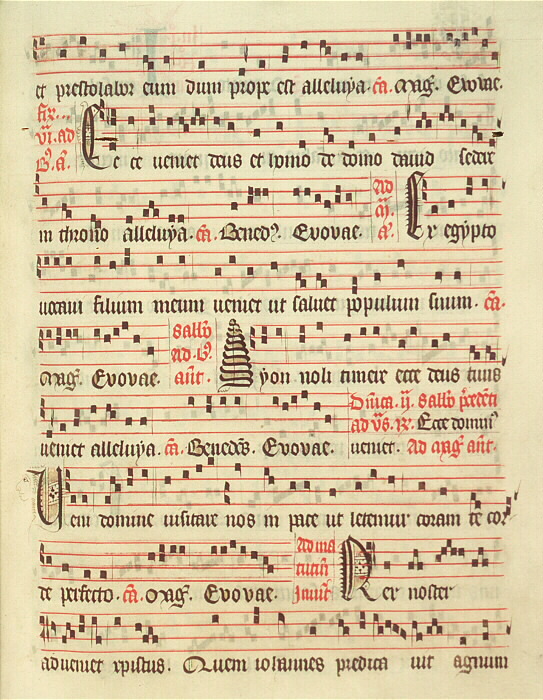 et prestolabor eum dum prope est alleluya. ca. Mag. Evovae.
vi. ad Ecce veniet deus et homo de domo david sedere
in throno alleluya. ca. Bened. Evovae. Ad Ex egypto
vocavi filium meum veniet ut salvet populum suum. ca.
Mag. Evovae. Sabbo ad. B. ant. Syon noli timere ecce deus tuus
veniet alleluya. ca. Benedcs. Evovae. Dnica. ij. Sabbo pcedeti ad vs. R. Ecce dominus veniet. Ad mag ant.
Veni domine visitare nos in pace ut letemur coram te cor
de perfecto. ca. Mag. Evovae. Ad ma tutin Invit Rex noster
adveniet xpistus. Quem iohannes predica vit agnum